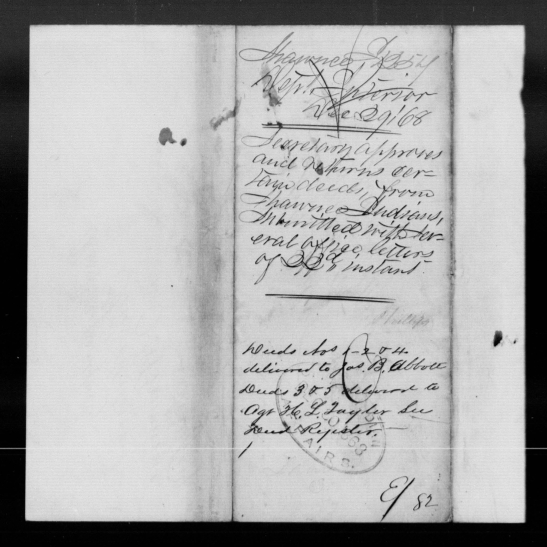 Shawnee, I 354
Dept. Interior
Dec 29, '68
Secretary approves
and returns cer-
tain deeds, from
Shawnee Indians,
submitted with sev-
eral office letters
of 22d instant.
Phillips
Deeds Nos 1-2 & 4
delivered to Jas B. Abbott
Deeds 3 & 5 delivered to
Agt H. L. Taylor See
Deed Register
AIRS.
E/82